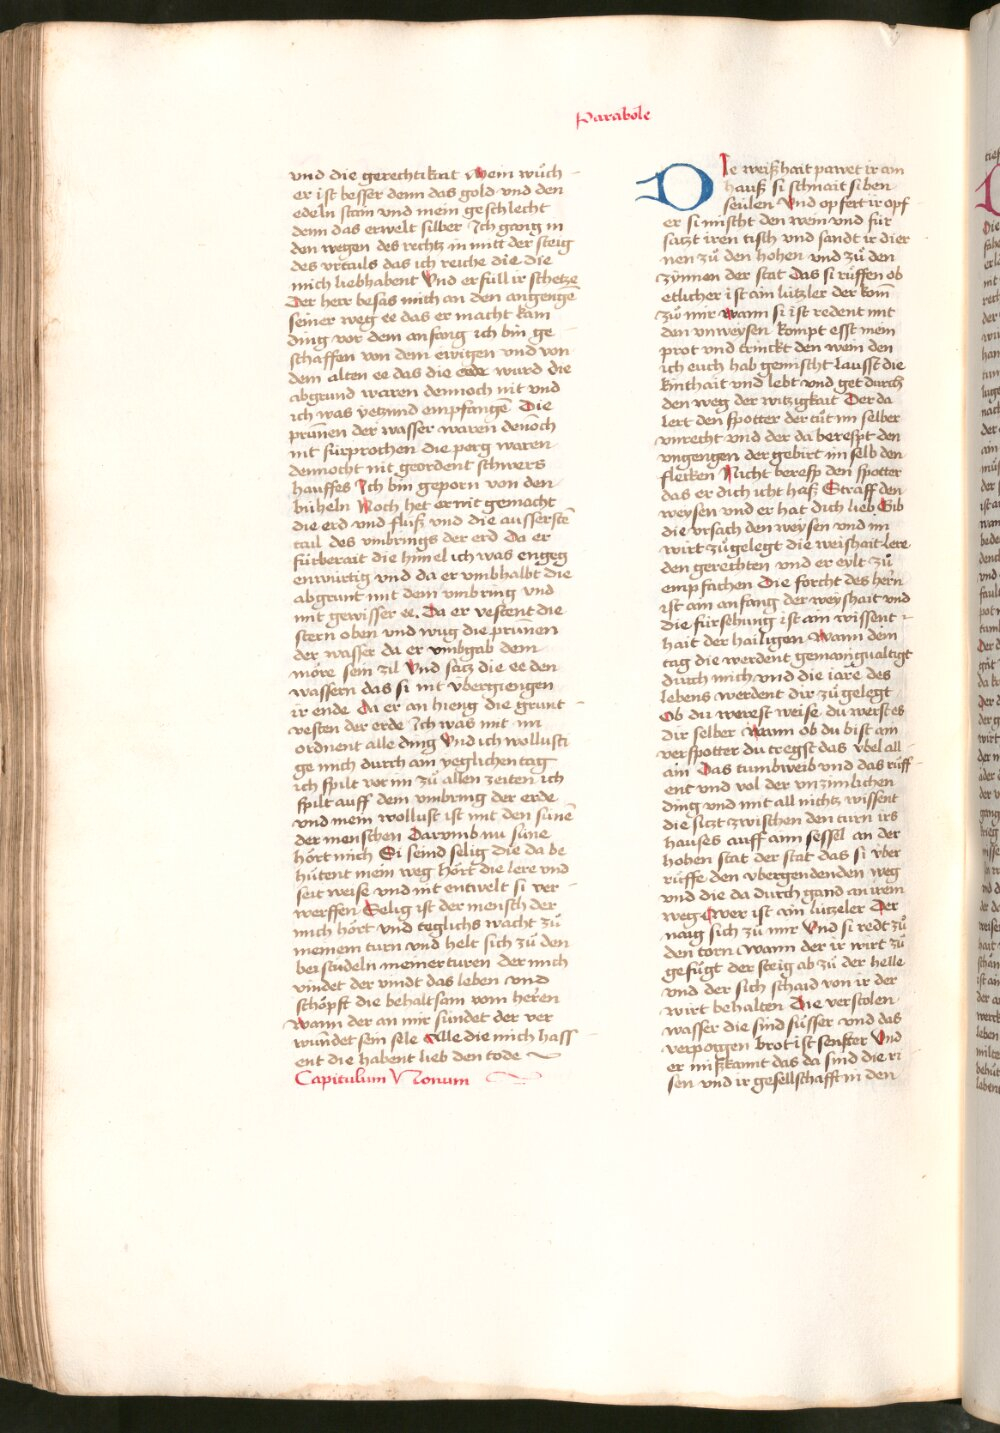 Parabole
und die gerechtikait Mein wůch
er ist besser denn das gold und den
edeln stain und mein geschlecht
denn das erwelt silber Ich gang in
den wegen des rechtz in mitt der steig
des urtails das ich reiche die die
mich liebhabent Und erfüll ir schetze
Der herr besas mich an den angenge
seiner weg ee das er macht kain
ding vor dem anfang ich bin ge
schaffen von dem ewigen und von
dem alten ee das die erde wurd die
abgrund waren dennoch nit und
ich was yetzund empfangē Die
prūnen der wasser waren denōch
nit fürprochen die perg waren
dennocht nit geordent schwers
hauffes Ich bin geporn von den
büheln Noch het er nit gemacht
die erd und flüß und die ausserstē
tail des umbrings der erd Da er
fürberait die himel ich was engeg
enwürtig und da er umbhalbt die
abgrunt mit dem umbring und
mit gewisser ee. Da er vestent die
stern oben und wůg die prunen
der wasser da er umbgab dem
möre sein zil Und satz die ee den
wassern das si nit übergiengen
ir ende Da er an hieng die grunt
vesten der erde Ich was mit im
ordnent alle ding Und ich wollusti
ge mich durch ain yeglichen tag
ich spilt vor im zů allen zeiten ich
spilt auff dem umbring der erde
und mein wollust ist mit den sünē
der menschen Darumb nu süne
hört mich Si seind selig die da be
hütent mein weg Hört die lere und
seit weise und nit entwelt si ver
werffen Selig ist der mensch der
mich hört und teglichs wacht zů
meinem turn und helt sich zů den
beistudeln meiner turen der mich
vindet der vindt das leben und
schöpft die behaltsam vom herren
Wann der an mir sündet der ver
wundet sein sele Alle die mich hass
ent die habent lieb den tode
Capitulum Nonum
DIe weißhait pawet ir ain
hauß si schnait siben
seülen Und opfert ir opf
er si mischt den wein und für
satzt iren tisch und sandt ir dier
nen zů den hohen und zů den
zynnen der stat Das si rüffen ob
etlicher ist ain lützler der kom̄
zů mir Wann si ist redent mit
den unweysen kompt esst mein
prot und trinckt den wein den
ich euch hab gemischt Lausst die
kinthait und lebt und get durch
den weg der witzigkait Der da
lert den spotter der tůt im selber
unrecht und der da berefpt den
ungengen der gebirt im selb den
flecken Nicht berefp den spotter
das er dich icht haß Straff den
weysen und er hat dich lieb Gib
die ursach den weysen und im
wirt zůgelegt die weishait Lere
den gerechten und er eylt zů
empfachen Die forcht des hern̄
ist am anfang der weyshait und
die fürsehung ist ain wissent
hait der hailigen Wann dein
tag die werdent gemanigualtigt
durch mich und die iare des
lebens werdent dir zů gelegt
Ob du werest weise du werst es
dir selber Wann ob du bist ain
verspotter du tregst das übel all
ain Das tumb weib und das rüff
ent und vol der unzimlichen
ding und mit all nichtz wissent
die sitzt zwischen den turn irs
hauses auff aim sessel an der
hohen stat der stat das si über
rüffe den übergendenden weg
und die da durch gand an irem
weg Wer ist ain lützeler Der
naig sich zů mir Und si redt zů
den torn Wann der ir wirt zů
gefügt der steig ab zů der helle
und der sich schaid von ir der
wirt behalten Die verstolen
wasser die sind süsser und das
verporgen brot ist senfter Und
er mißkannt das da sind die ri
sen und ir gesellschafft in den